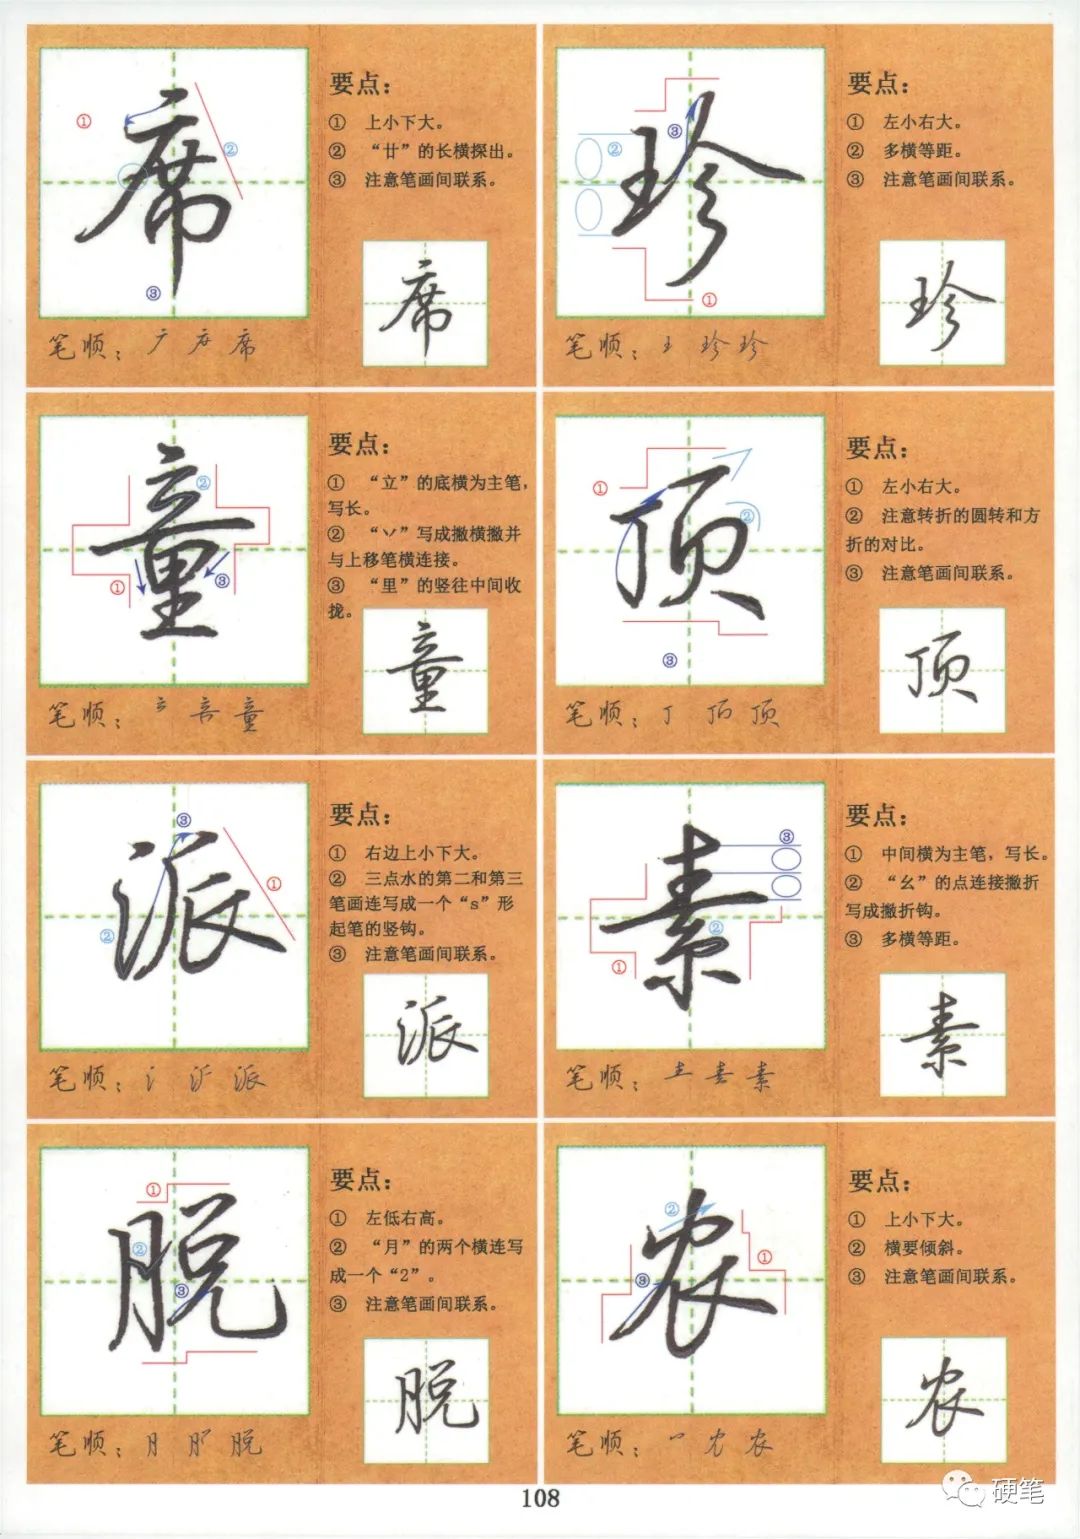 席
要点：
① 上小下大。
② “廿”的长横探出。
③ 注意笔画间联系。
①
②
③
席
笔顺：广 席
珍
要点：
① 左小右大。
② 多横等距。
③ 注意笔画间联系。
③
②
①
珍
笔顺：王 珍 珍
童
要点：
① “立”的底横为主笔，
写长。
② “丷”写成撇横撇并
与上移笔横连接。
③ “里”的竖往中间收
拢。
②
①
③
童
笔顺：童
顶
要点：
① 左小右大。
② 注意转折的圆转和方
折的对比。
③ 注意笔画间联系。
①
②
③
顶
笔顺：丁 顶
派
要点：
① 右边上小下大。
② 三点水的第二和第三
笔画连写成一个“s”形
起笔的竖钩。
③ 注意笔画间联系。
③
①
②
派
笔顺：氵 派
素
要点：
① 中间横为主笔，写长。
② “幺”的点连接撇折
写成撇折钩。
③ 多横等距。
③
②
①
素
笔顺：素
脱
要点：
① 左低右高。
② “月”的两个横连写
成一个“2”。
③ 注意笔画间联系。
①
②
③
脱
笔顺：月 脱
农
要点：
① 上小下大。
② 横要倾斜。
③ 注意笔画间联系。
②
①
③
农
笔顺：农
108
硬笔